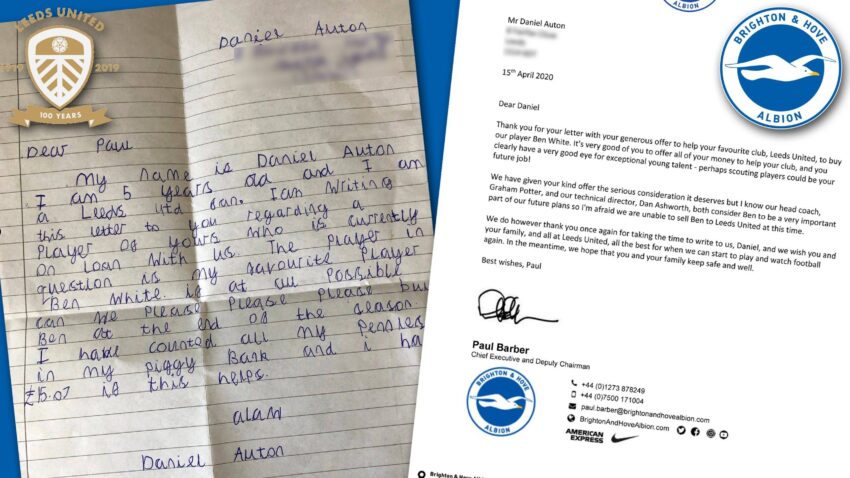 LEEDS UNITED
1919 2019
100 YEARS
Daniel Auton
Dear Paul
My Name is Daniel Auton
I am 5 years old and I am
a Leeds utd fan. I am Writing
this letter to you regarding a
Player of yours who is currently
on loan With us. The Player in
question is my favourite Player
Ben White. is at all Possible
can we Please Please Please
Ben at the end of the season.
I have counted all my Pennies
in my Piggy Bank and i ha
£15.07 if this helps.
alan
Daniel Auton
ALBION
BRIGHTON & HOVE
ALBION
Mr Daniel Auton
Leeds
15th April 2020
Dear Daniel
Thank you for your letter with your generous offer to help your favourite club, Leeds United, to buy
our player Ben White. It's very good of you to offer all of your money to help your club, and you
clearly have a very good eye for exceptional young talent - perhaps scouting players could be your
future job!
We have given your kind offer the serious consideration it deserves but I know our head coach,
Graham Potter, and our technical director, Dan Ashworth, both consider Ben to be a very important
part of our future plans so I'm afraid we are unable to sell Ben to Leeds United at this time.
We do however thank you once again for taking the time to write to us, Daniel, and we wish you and
your family, and all at Leeds United, all the best for when we can start to play and watch football
again. In the meantime, we hope that you and your family keep safe and well.
Best wishes, Paul
Paul Barber
Chief Executive and Deputy Chairman
BRIGHTON & HOVE
ALBION
+44 (0)1273 878249
+44 (0)7500 171004
paul.barber@brightonandhovealbion.com
BrightonAndHoveAlbion.com
AMERICAN EXPRESS
Brighton & Hove